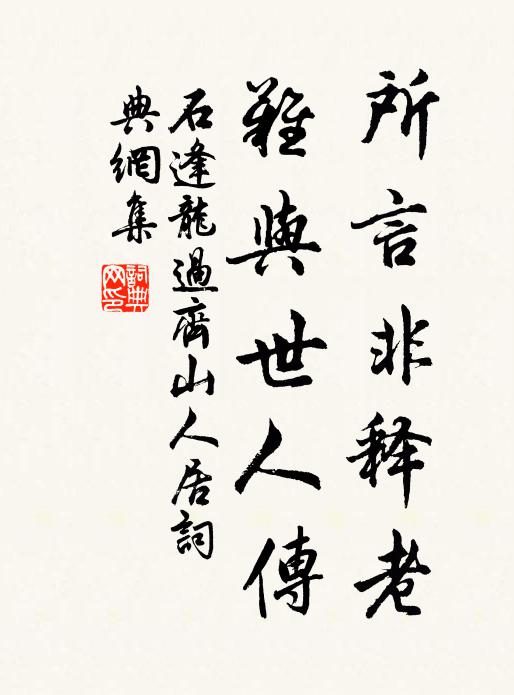 所言非释老
難與世人傳
石逢龍過齊山人居詞
典網集
詞典網印